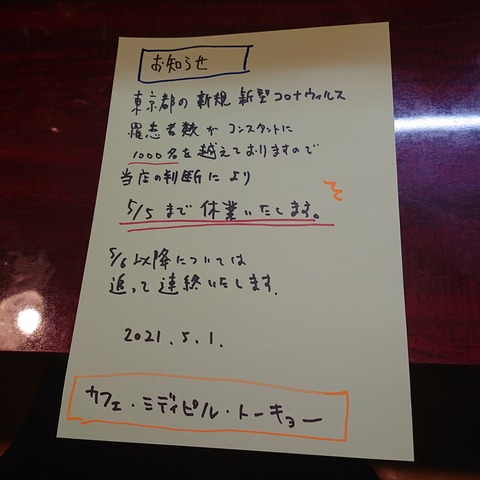 お知らせ
東京都の新規新型コロナウィルス
罹患者数がコンスタントに
1000名を越えておりますので
当店の判断により
5/5まで休業いたします。
5/6以降については
追って連絡いたします.
2021.5.1.
カフェ・ミディピル・トーキョー